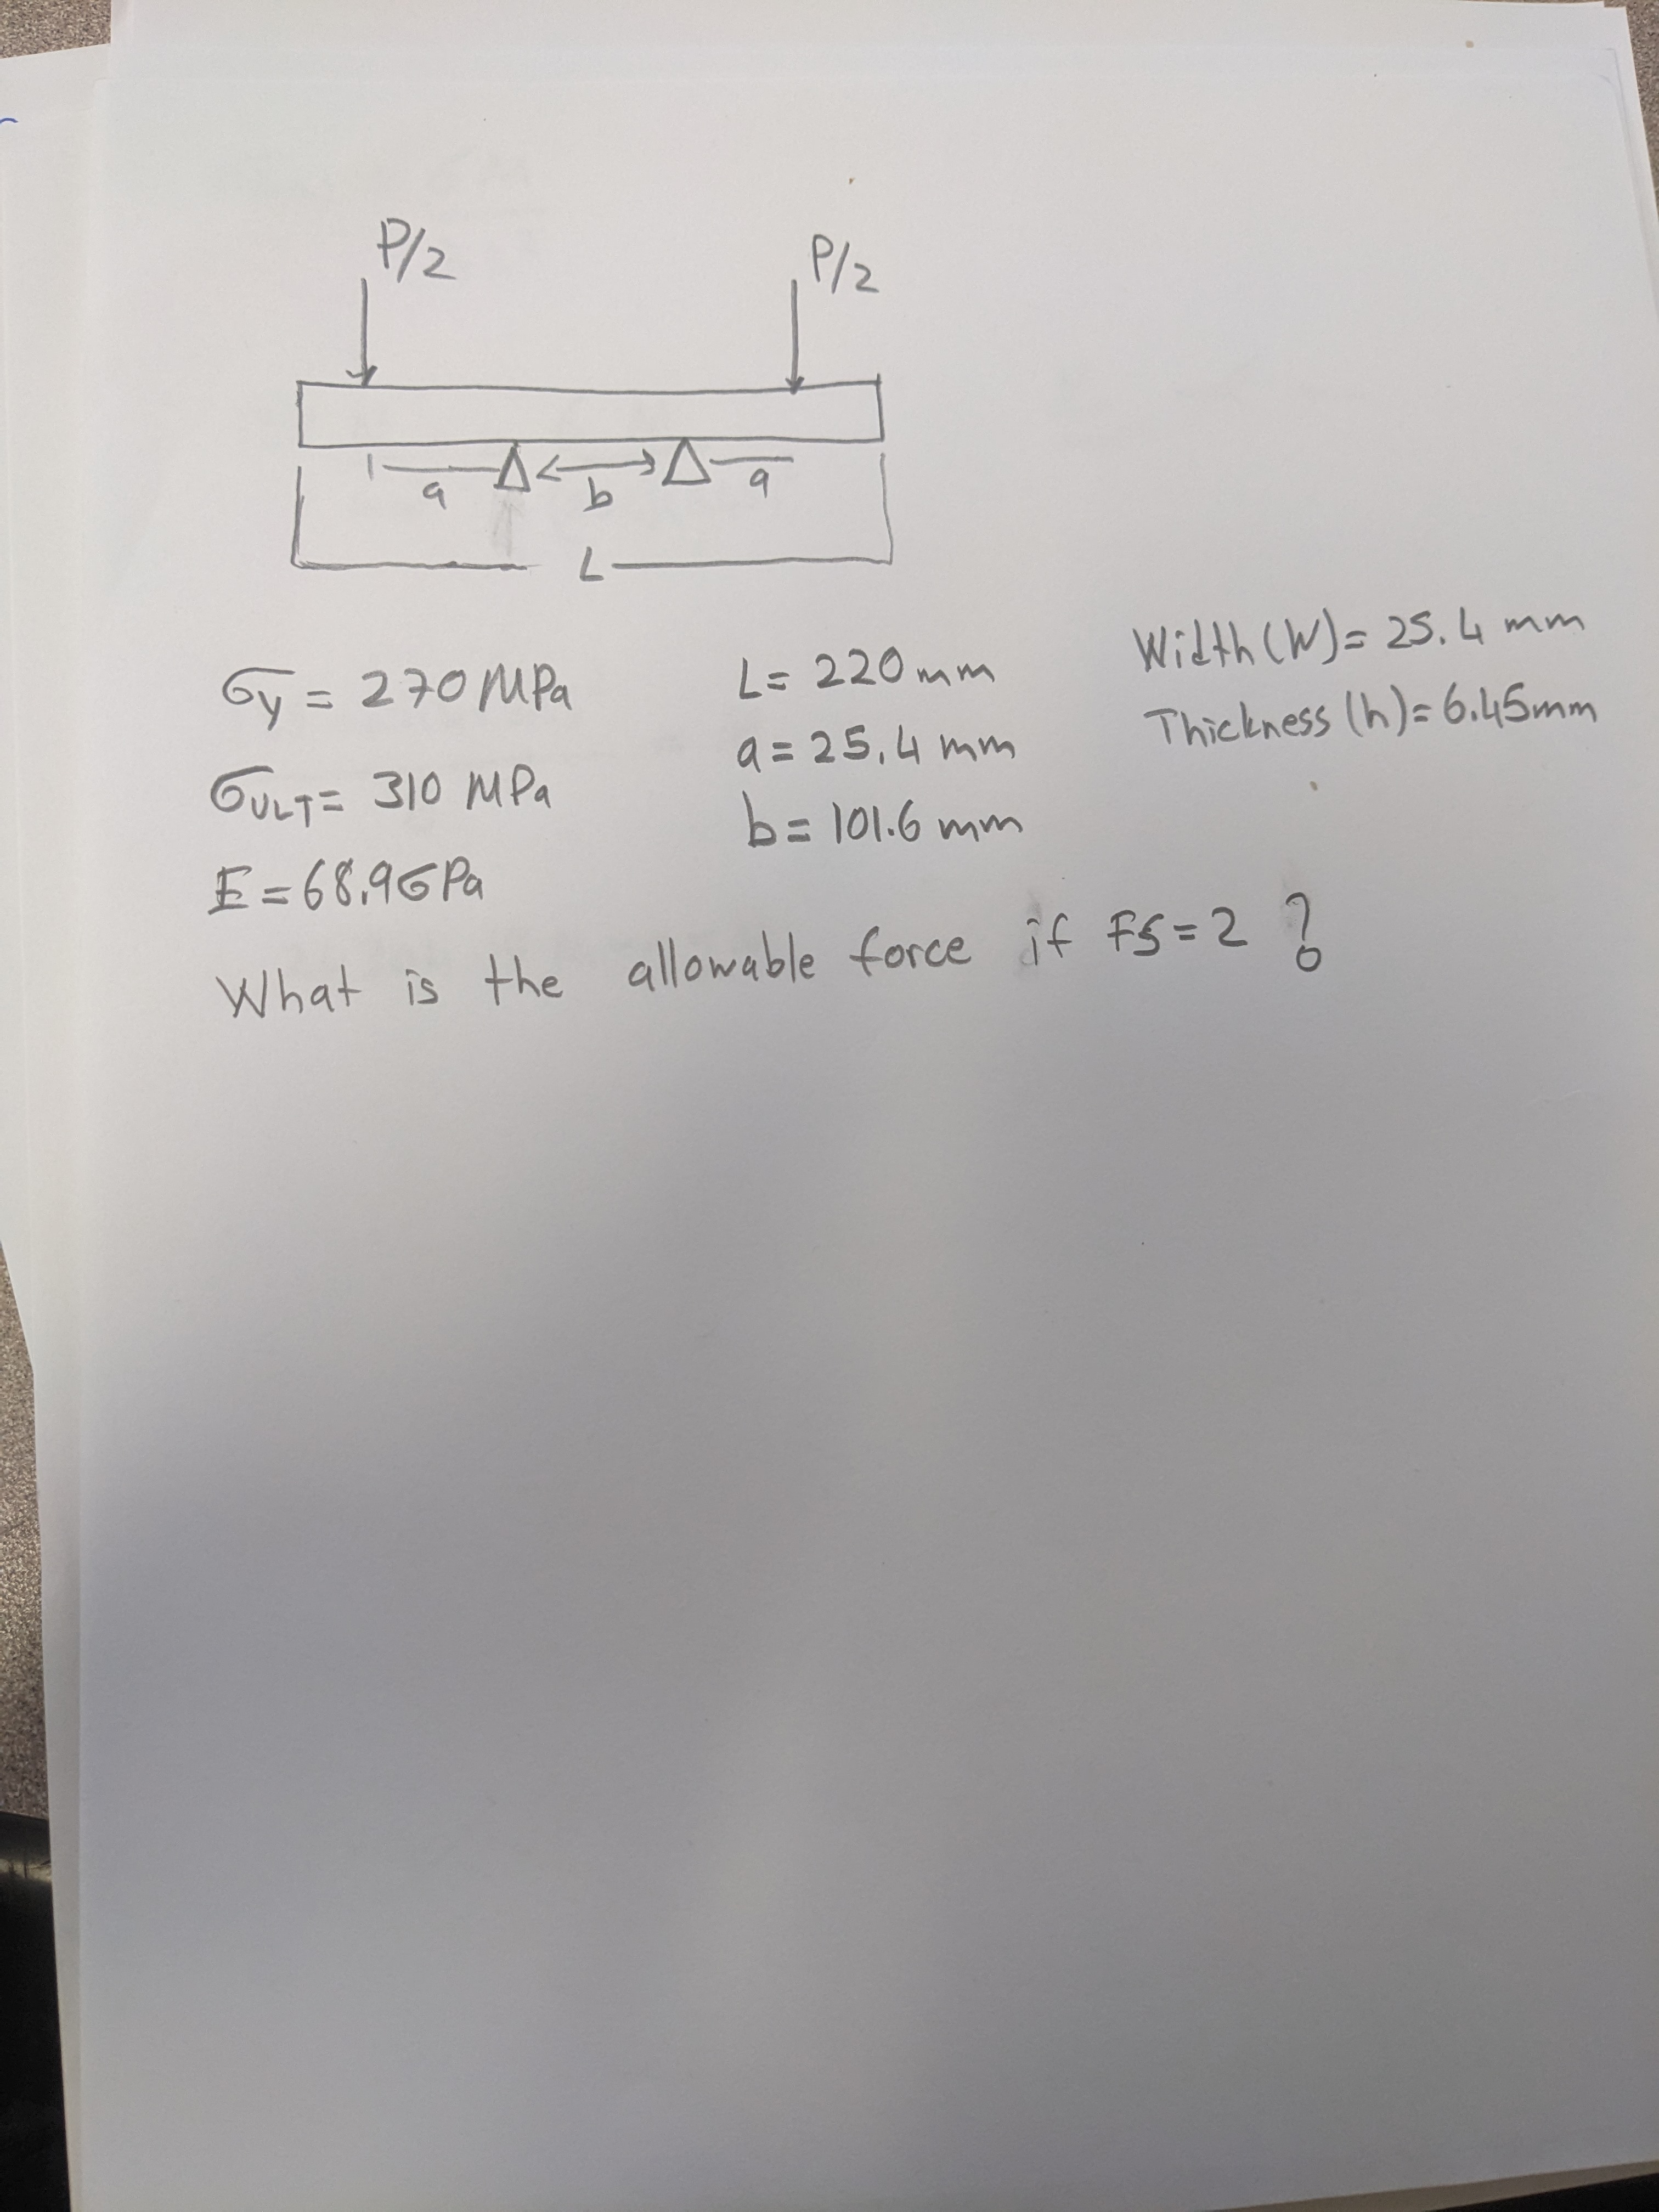 P/2
P/2
a
b
a
L
σy = 270 MPa
L = 220 mm
Width (W) = 25.4 mm
σULT = 310 MPa
a = 25.4 mm
Thickness (h) = 6.45mm
E = 68.9GPa
b = 101.6 mm
What is the allowable force if FS = 2 ?